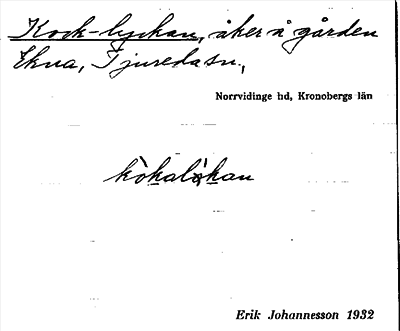 Kock-lyckan, åker å gården
Ekna, Tjureda sn.,
Norrvidinge hd, Kronobergs län
Erik Johannesson 1932